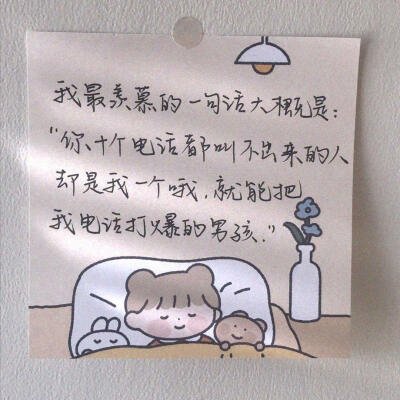 我最羡慕的一句话大概是:
“你、十个电话都叫不出来的人
却是我一个哦,就能把
我电话打爆的男孩.”